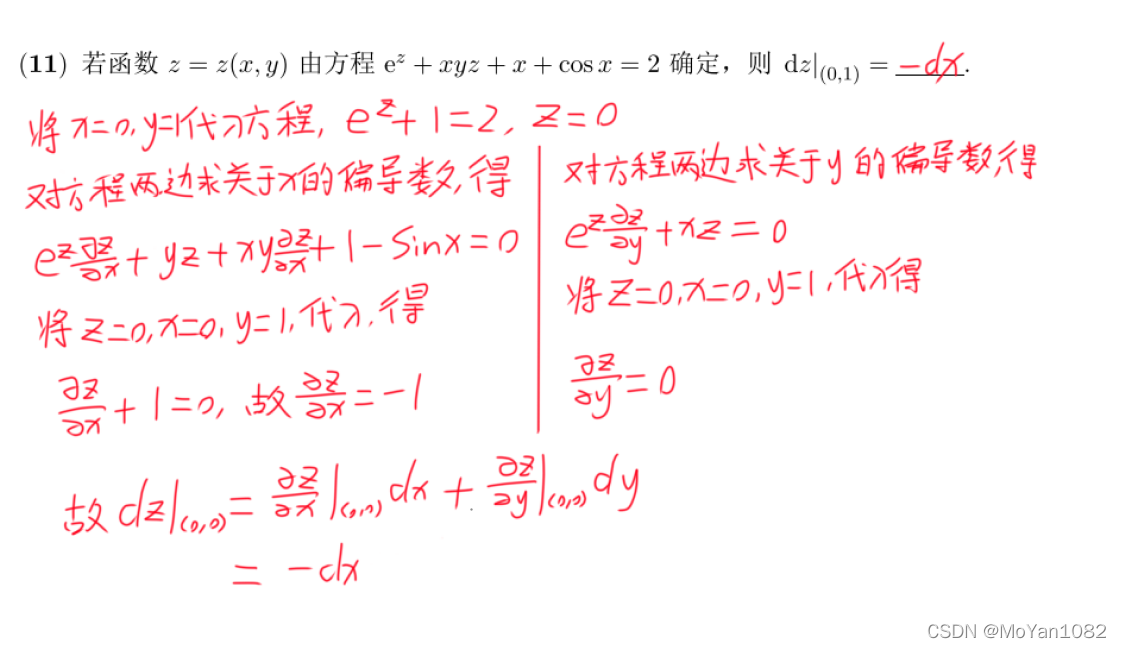 (11) 若函数 z = z(x, y) 由方程 e^z + xyz + x + cos x = 2 确定，则 dz|(0,1) = -dx.
将 x=0, y=1代入方程, e^z+1=2, z=0
对方程两边求关于x的偏导数,得
e^z ∂z/∂x + yz + xy ∂z/∂x + 1 - sinx = 0
将 z=0, x=0, y=1, 代入, 得
∂z/∂x + 1 = 0, 故 ∂z/∂x = -1
对方程两边求关于y的偏导数,得
e^z ∂z/∂y + xz = 0
将 z=0, x=0, y=1, 代入得
∂z/∂y = 0
故 dz|(0,0) = ∂z/∂x|(0,0) dx + ∂z/∂y|(0,0) dy
= -dx
CSDN @MoYan1082